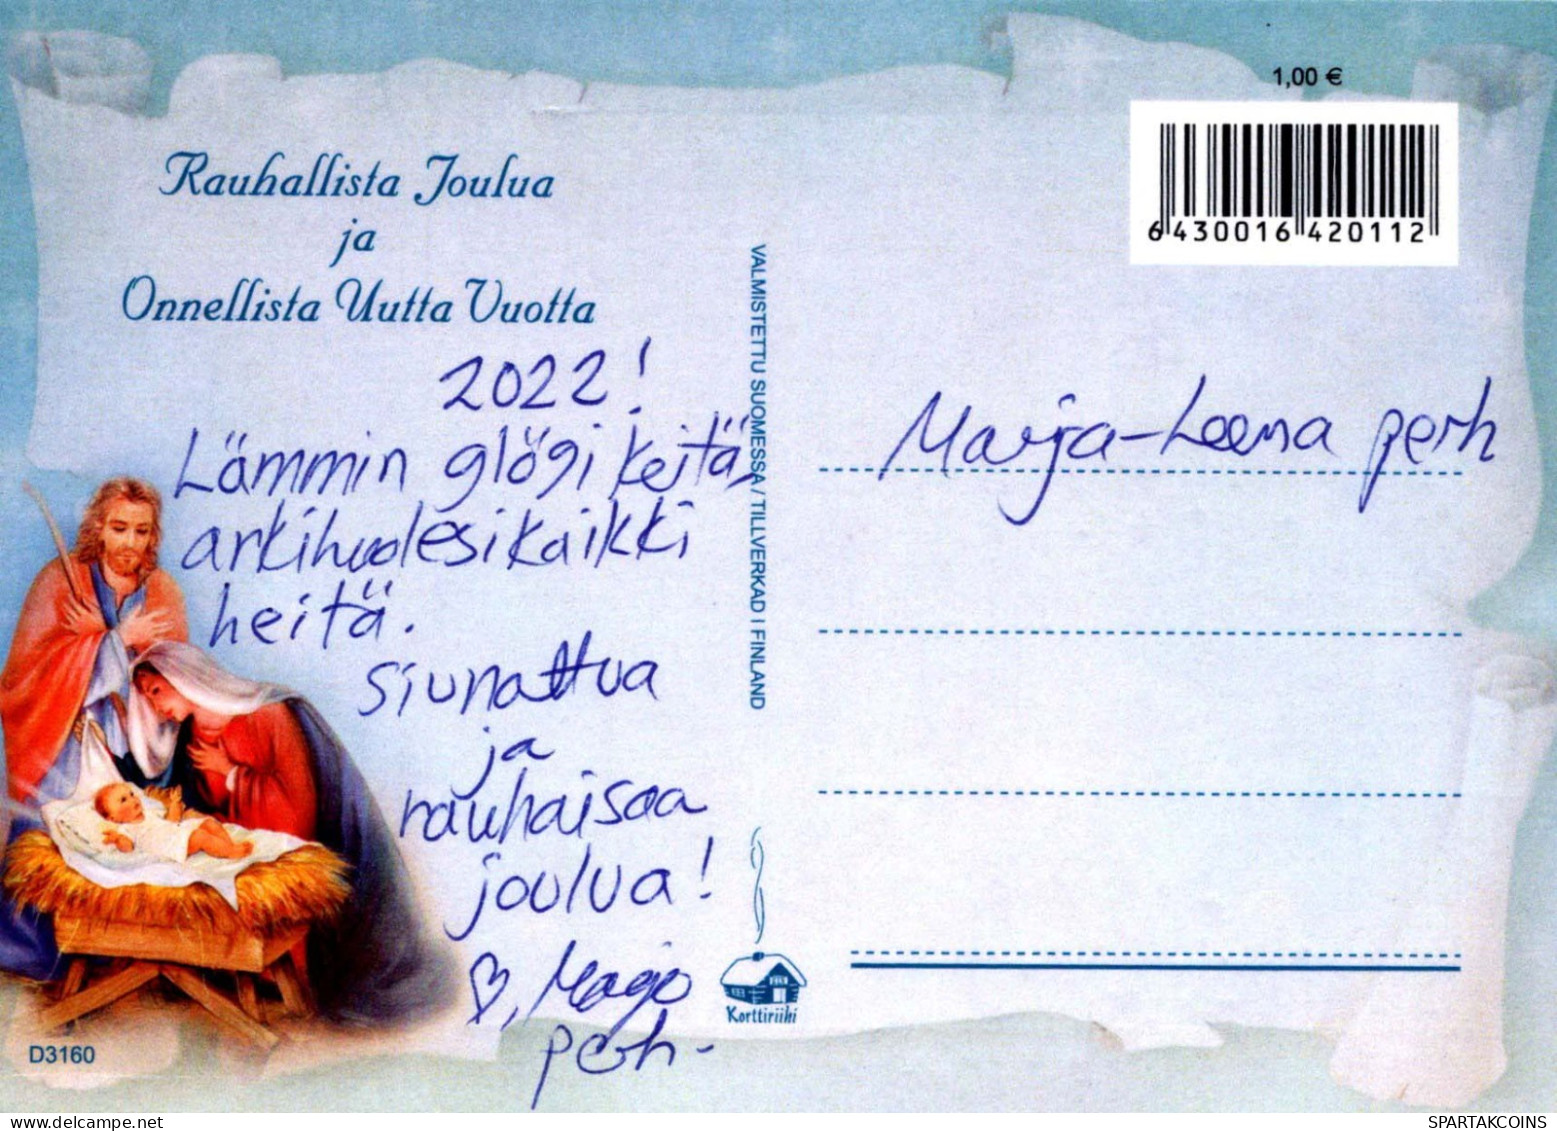 1,00 €
6 430016 420112
Rauhallista Joulua
ja
Onnellista Uutta Vuotta
2022!
Lämmin glögi keitä,
arkihuolesi kaikki
heitä.
siunattua
ja
rauhaisaa
joulua!
♡, Marjo
perh-
VALMISTETTU SUOMESSA / TILLVERKAD I FINLAND
Marja-Leena perh
Korttiriihi
D3160
SPARTAKCOINS